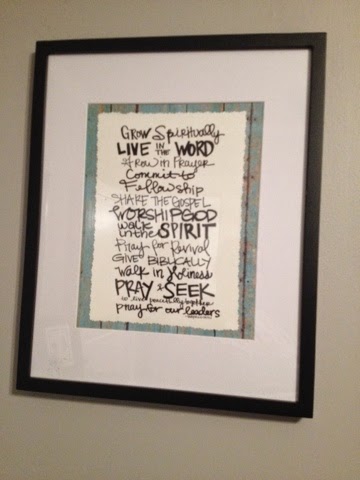 Grow Spiritually
LIVE IN THE WORD
Grow in Prayer
Commit to
Fellowship
SHARE THE GOSPEL
WORSHIP GOD
walk in the SPIRIT
Pray for Revival
GIVE BIBLICALLY
Walk in Holiness
PRAY & SEEK
to live peacefully together
pray for our leaders